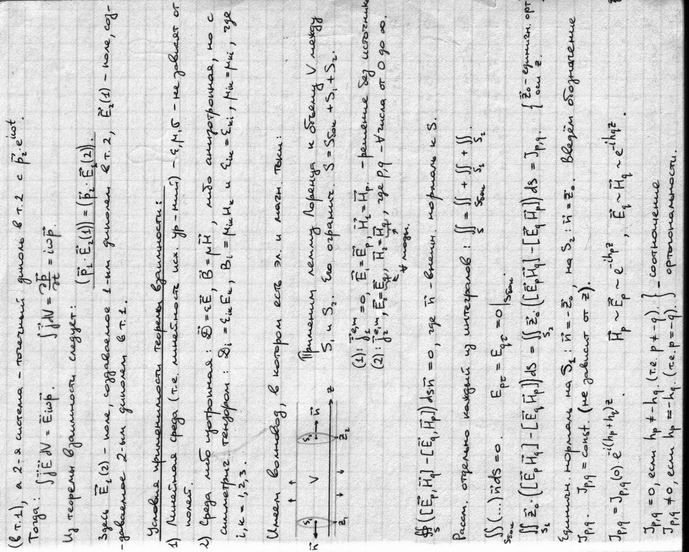 (в т.1), а 2-я система – точечный диполь в т.2 с p⃗₂·e^{iωt}
Тогда: ∫j⃗E⃗dV = E⃗iωp⃗. ∫j⃗dV = ∂p⃗/∂t = iωp⃗
Из теоремы взаимности следует:
(p⃗₂ E⃗₁(2)) = (p⃗₁ E⃗₂(1)).
Здесь E⃗₁(2) – поле, создаваемое 1-ым диполем в т.2, E⃗₂(1) – поле, соз-
-даваемое 2-ым диполем в т.1.
Условия применимости теоремы взаимности:
1) Линейная среда (т.е. линейность исх. ур-ний) – ε,μ,σ – не зависят от
полей.
2) Среда либо изотропная: D⃗=εE⃗, B⃗=μH⃗, либо анизотропная, но с
симметрич. тензором: Dᵢ=εᵢₖEₖ, Bᵢ=μᵢₖHₖ и εᵢₖ=εₖᵢ, μᵢₖ=μₖᵢ, где
i,k = 1,2,3.
Имеем волновод, в котором есть эл. и магн. токи:
n⃗ S₁ V S₂ n⃗ z
z₁ z₂
Применим лемму Лоренца к объему V между
S₁ и S₂. Его огранич. S = Sбок + S₁ + S₂.
(1): j⃗₁^{e,m}=0, E⃗₁=E⃗p, H⃗₁=H⃗p. – решение без источников
(2): j⃗₂^{e,m}=0, E⃗₂=E⃗q, H⃗₂=H⃗q, где p,q – ∀ числа от 0 до ∞.
∀ моды.
∯_S ([E⃗pH⃗q] – [E⃗qH⃗p])ds n⃗ = 0, где n⃗ – внешн. нормаль к S.
Рассм. отдельно каждый из интегралов: ∬_S = ∬_{Sбок} + ∬_{S₁} + ∬_{S₂}
∬_{Sбок} (...)n⃗ds = 0. Epτ = Eqτ = 0|_{Sбок}
∬_{S₂} z⃗₀([E⃗pH⃗q] – [E⃗qH⃗p])ds = ∬_{S₁} z⃗₀([E⃗pH⃗q] – [E⃗qH⃗p])ds = Jp,q. { z⃗₀ – единичн. орт оси z.
Единичн. нормаль на S₁: n⃗=-z⃗₀, на S₂: n⃗=z⃗₀. Введём обозначение
Jp,q. Jp,q = const. (не зависит от z).
Jp,q = Jp,q(0) e^{-i(hp+hq)z} H⃗p ~ E⃗p ~ e^{-ihpz}, E⃗q ~ H⃗q ~ e^{-ihqz}
Jp,q = 0, если hp ≠ -hq. (т.е. p ≠ -q). } – соотношение
Jp,q ≠ 0, если hp = -hq. (т.е. p = -q). } ортогональности.